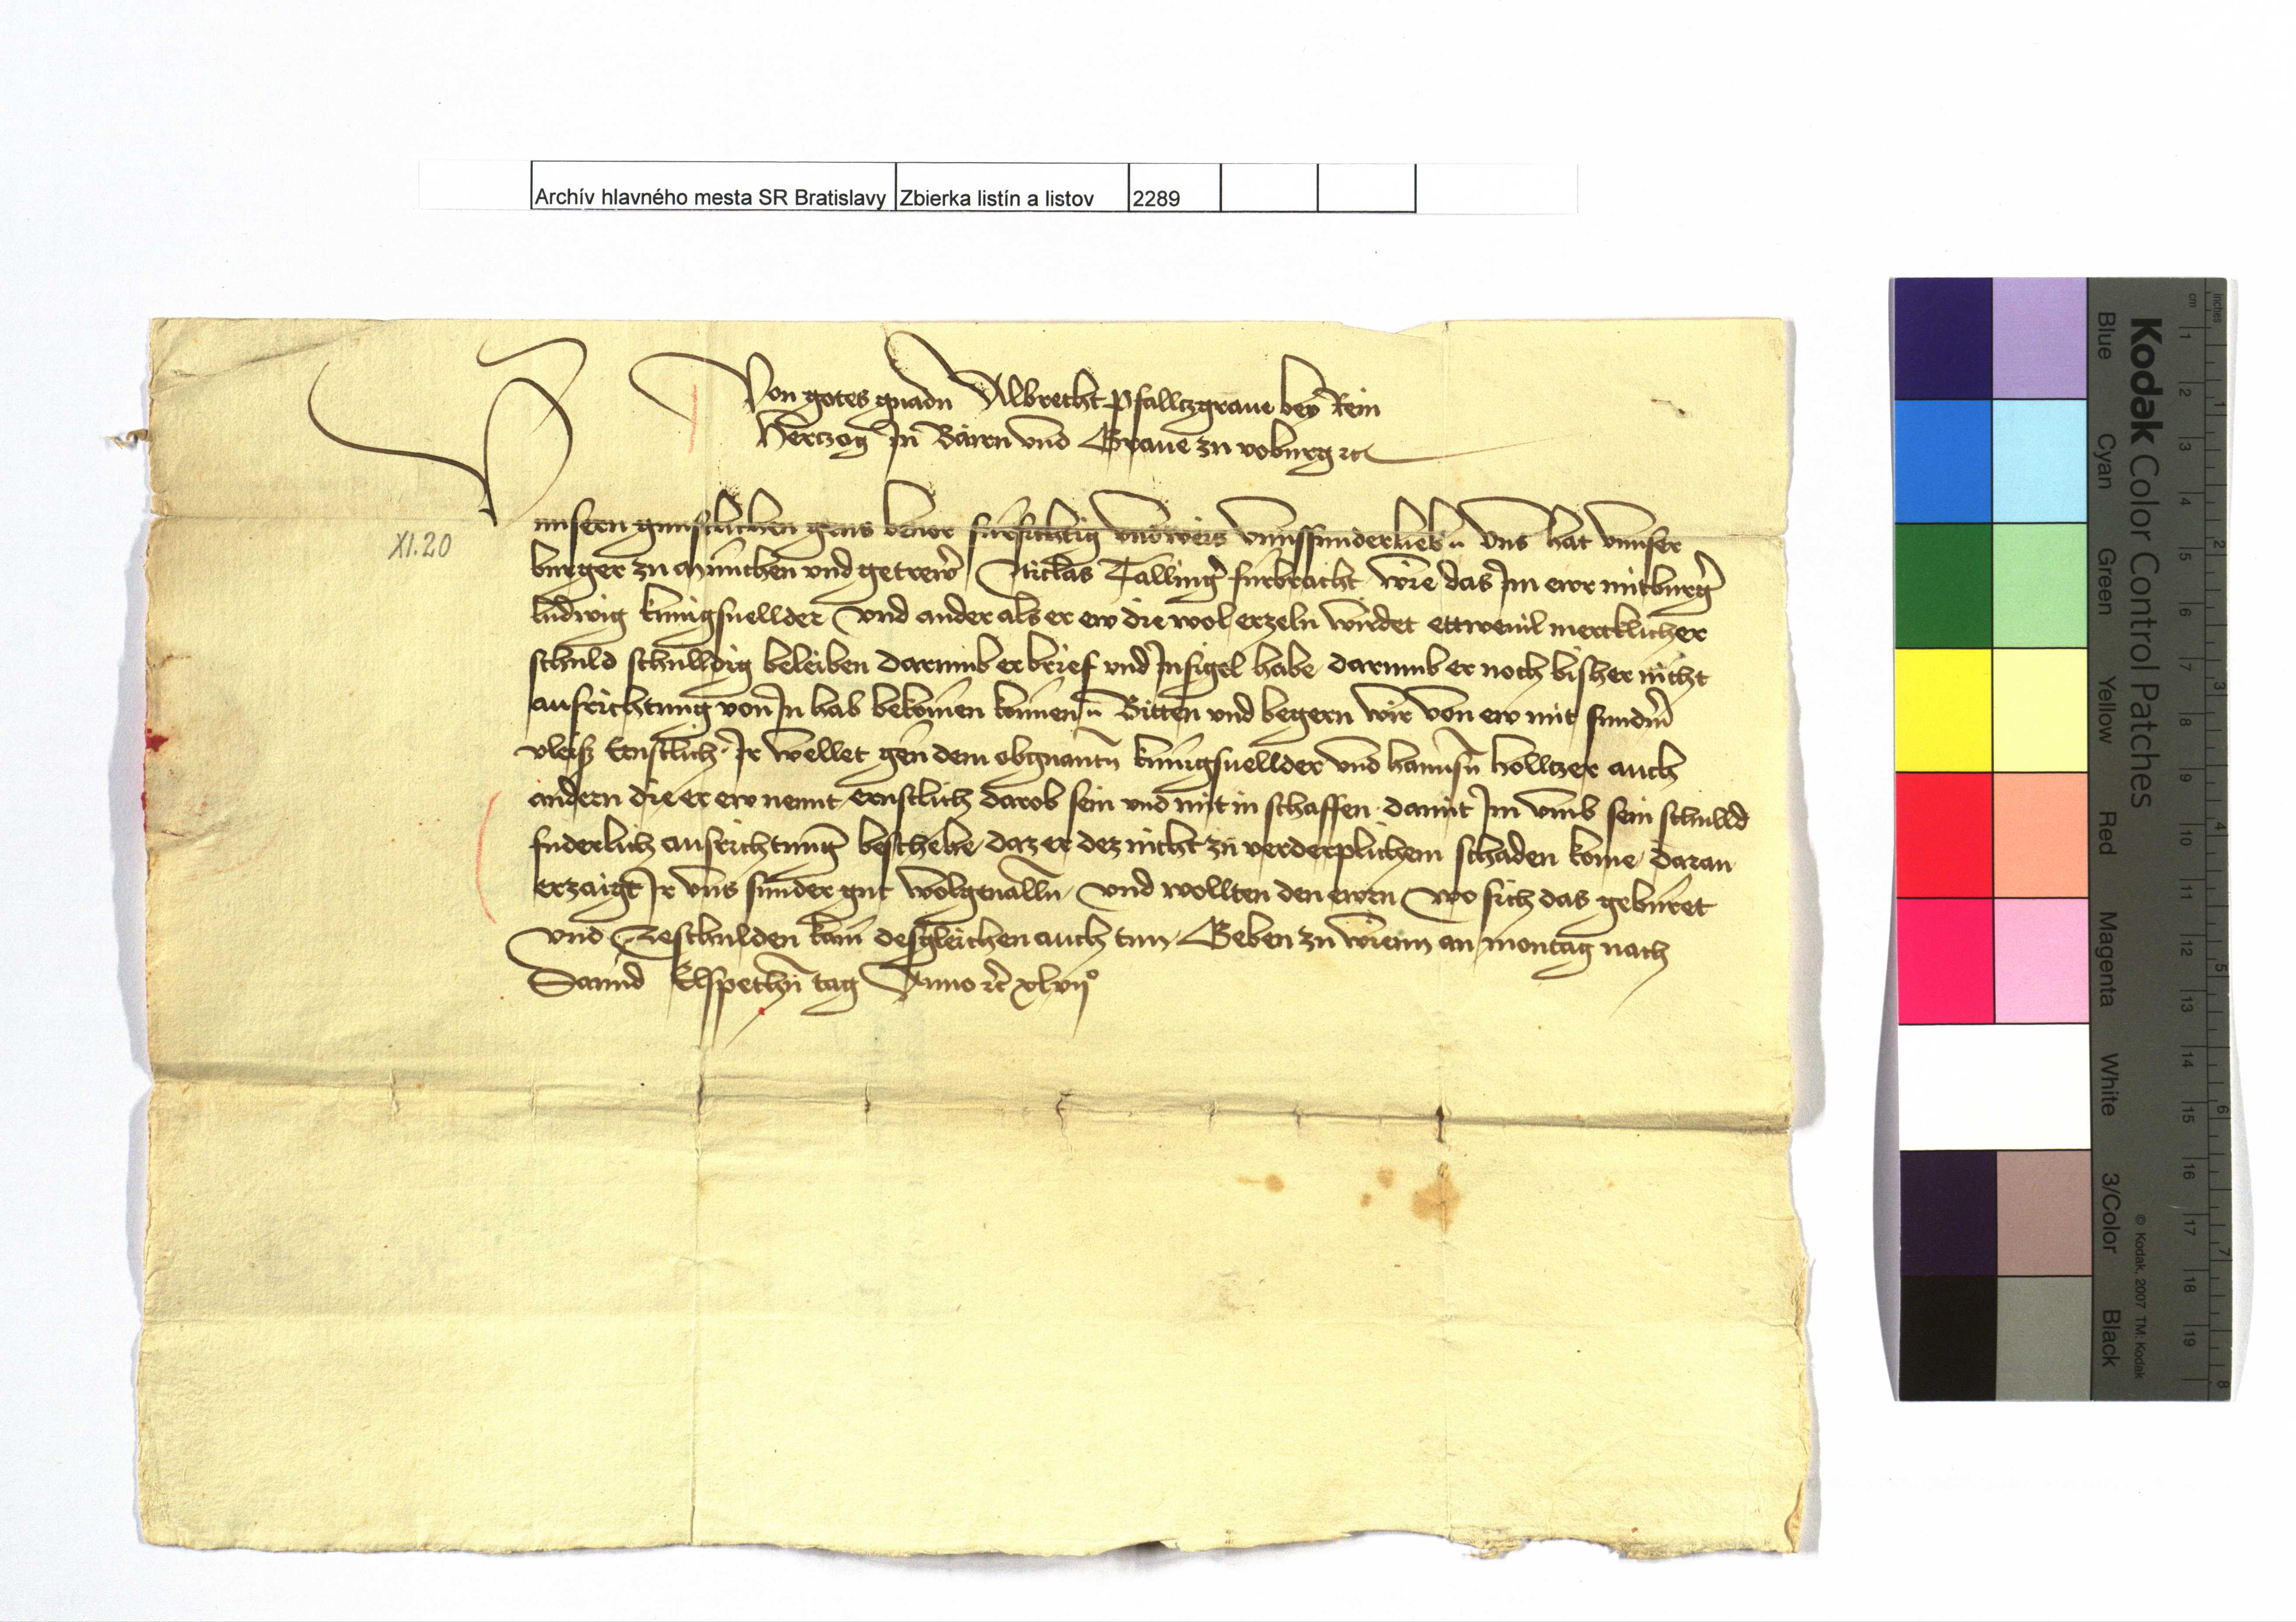 Archív hlavného mesta SR Bratislavy Zbierka listín a listov 2289
Von gotes gnadn Albrecht Pfalltzgraue bey Rein
Hertzog Jn Bairn vnd Graue zu voburg ꝛc
XI.20
Vnnsern gunstlichen grus beuor fursichtig vnd weis vnnssunderlieb Vns hat vnnser
burger zu Munchen vnd getrewr Niclas Talling fürbracht wie das Jm ewr mitburg
ludwig kunigsuellder vnd ander als er ew die wol erzeln wirdet ettweuil mercklicher
schuld schulldig beleiben darumb er brief vnd Jnsigel habe darumb er noch bisher nicht
ausrichtung von Jn hab bekomen konnen Bitten vnd begern wir von ew mit sundm
vleiss Ernstlich Jr wellet gen dem obgnantn kunigsuellder vnd hannsn holltzer auch
andern die er ew nennt ernstlich darob sein vnd mit in schaffen damit Jm vmb sein schulld
furderlich ausrichtung beschehe daz er dez nicht zu verderplichem schaden kome daran
erzaigt Jr vns sunder gut wolgeualln vnd wollten den ewrn wo sich das geburet
vnd ze schulden kam desgleichen auch tun Geben zu wienn an montag nach
Sannd Elspethn tag Anno ꝛc xlvij°
Kodak Color Control Patches
Blue Cyan Green Yellow Red Magenta White 3/Color Black
© Kodak, 2007 TM: Kodak
cm 1 2 3 4 5 6 7 8 9 10 11 12 13 14 15 16 17 18 19
inches 1 2 3 4 5 6 7 8